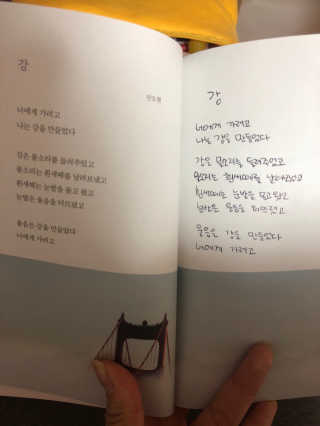 강
안도현
너에게 가려고
나는 강을 만들었다
강은 물소리를 들려주었고
물소리는 흰새떼를 날려보냈고
흰새떼는 눈발을 몰고 왔고
눈발은 울음을 터뜨렸고
울음은 강을 만들었다
너에게 가려고
강
너에게 가려고
나는 강을 만들었다
강은 물소리를 들려주었고
물소리는 흰새떼를 날려보냈고
흰새떼는 눈발을 몰고 왔고
눈발은 울음을 터뜨렸고
울음은 강을 만들었다
너에게 가려고